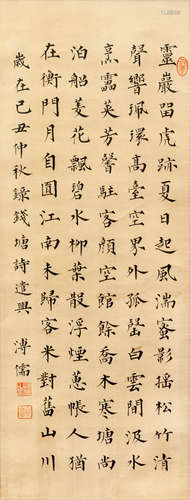 靈巖留虎跡夏日起風湍蜜影搖松竹清
聲響珮環高臺空界外孤磬白雲間汲水
烹靈英芳馨駐客顏空館餘喬木寒塘尚
泊船菱花飄碧水柳葉散浮煙蕙帳人猶
在衡門月自圓江南未歸客米對舊山川
歲在己丑仲秋錄錢塘詩遣興 溥儒